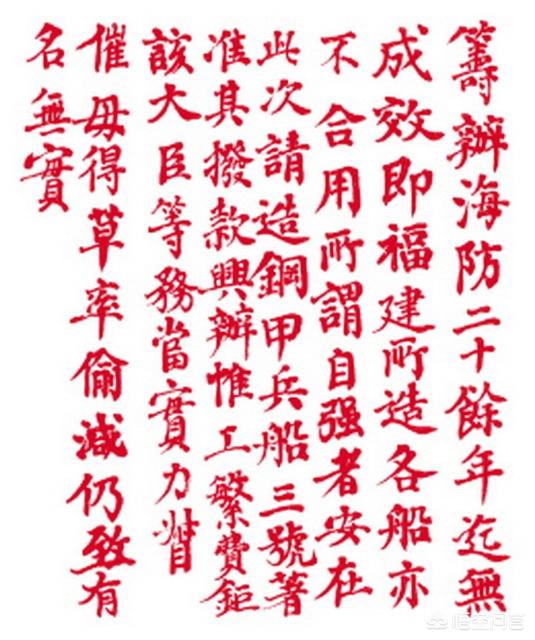 籌辦海防二十餘年迄無
成效即福建所造各船亦
不合用所謂自强者安在
此次請造鋼甲兵船三號著
准其撥款興辦惟工繁費鉅
該大臣等務當實力督
催毋得草率偷減仍致有
名無實
悟空问答